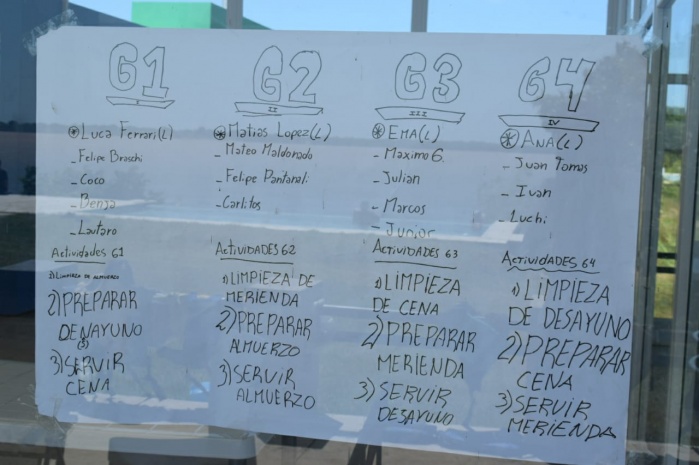 G1
I
Luca Ferrari(L)
- Felipe Braschi
- Coco
- Benja
- Lautaro
Actividades G1
1) LIMPIEZA DE ALMUERZO
2) PREPARAR
DENAYUNO
(S)
3) SERVIR
CENA
G2
II
Matias Lopez(L)
- Mateo Maldonado
- Felipe Pantanali
- Carlitos
ACTIVIDADES G2
1) LIMPIEZA DE
MERIENDA
2) PREPARAR
ALMUERZO
3) SERVIR
ALMUERZO
G3
III
EMA(L)
- Maximo G.
- Julian
- Marcos
- Junior
ACTIVIDADES G3
1) LIMPIEZA
DE CENA
2) PREPARAR
MERIENDA
3) SERVIR
DESAYUNO
G4
IV
ANA(L)
- Juan Tomas
- Ivan
- Luchi
ACTIVIDADES G4
1) LIMPIEZA
DE DESAYUNO
2) PREPARAR
CENA
3) SERVIR
MERIENDA